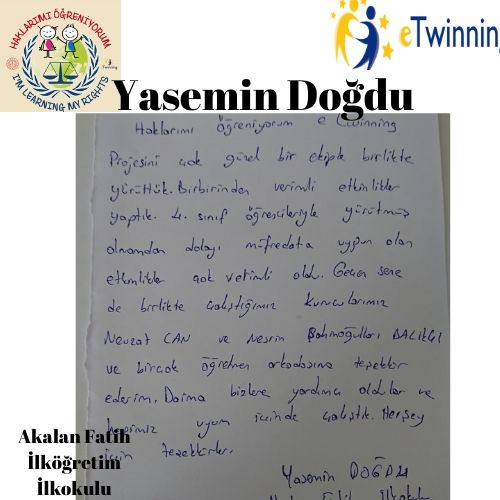 HAKLARIMI ÖĞRENİYORUM
I'M LEARNING MY RIGHTS
eTwinning
Yasemin Doğdu
Haklarımı öğreniyorum e Twinning
Projesini çok güzel bir ekiple birlikte
yürüttük. Birbirinden verimli etkinlikler
yaptık. 4. sınıf öğrencileriyle yürütmüş
olmamdan dolayı müfredata uygun olan
etkinlikler çok verimli oldu. Geçen sene
de birlikte çalıştığımız kurucularımız
Nevzat CAN ve Nesrin
ve birçok öğretmen arkadaşıma teşekkür
ederim. Daima bizlere yardımcı oldular ve
hepimiz uyum içinde çalıştık. Herşey
için teşekkürler.
Yasemin DOĞDU
Akalan Fatih
İlköğretim
İlkokulu